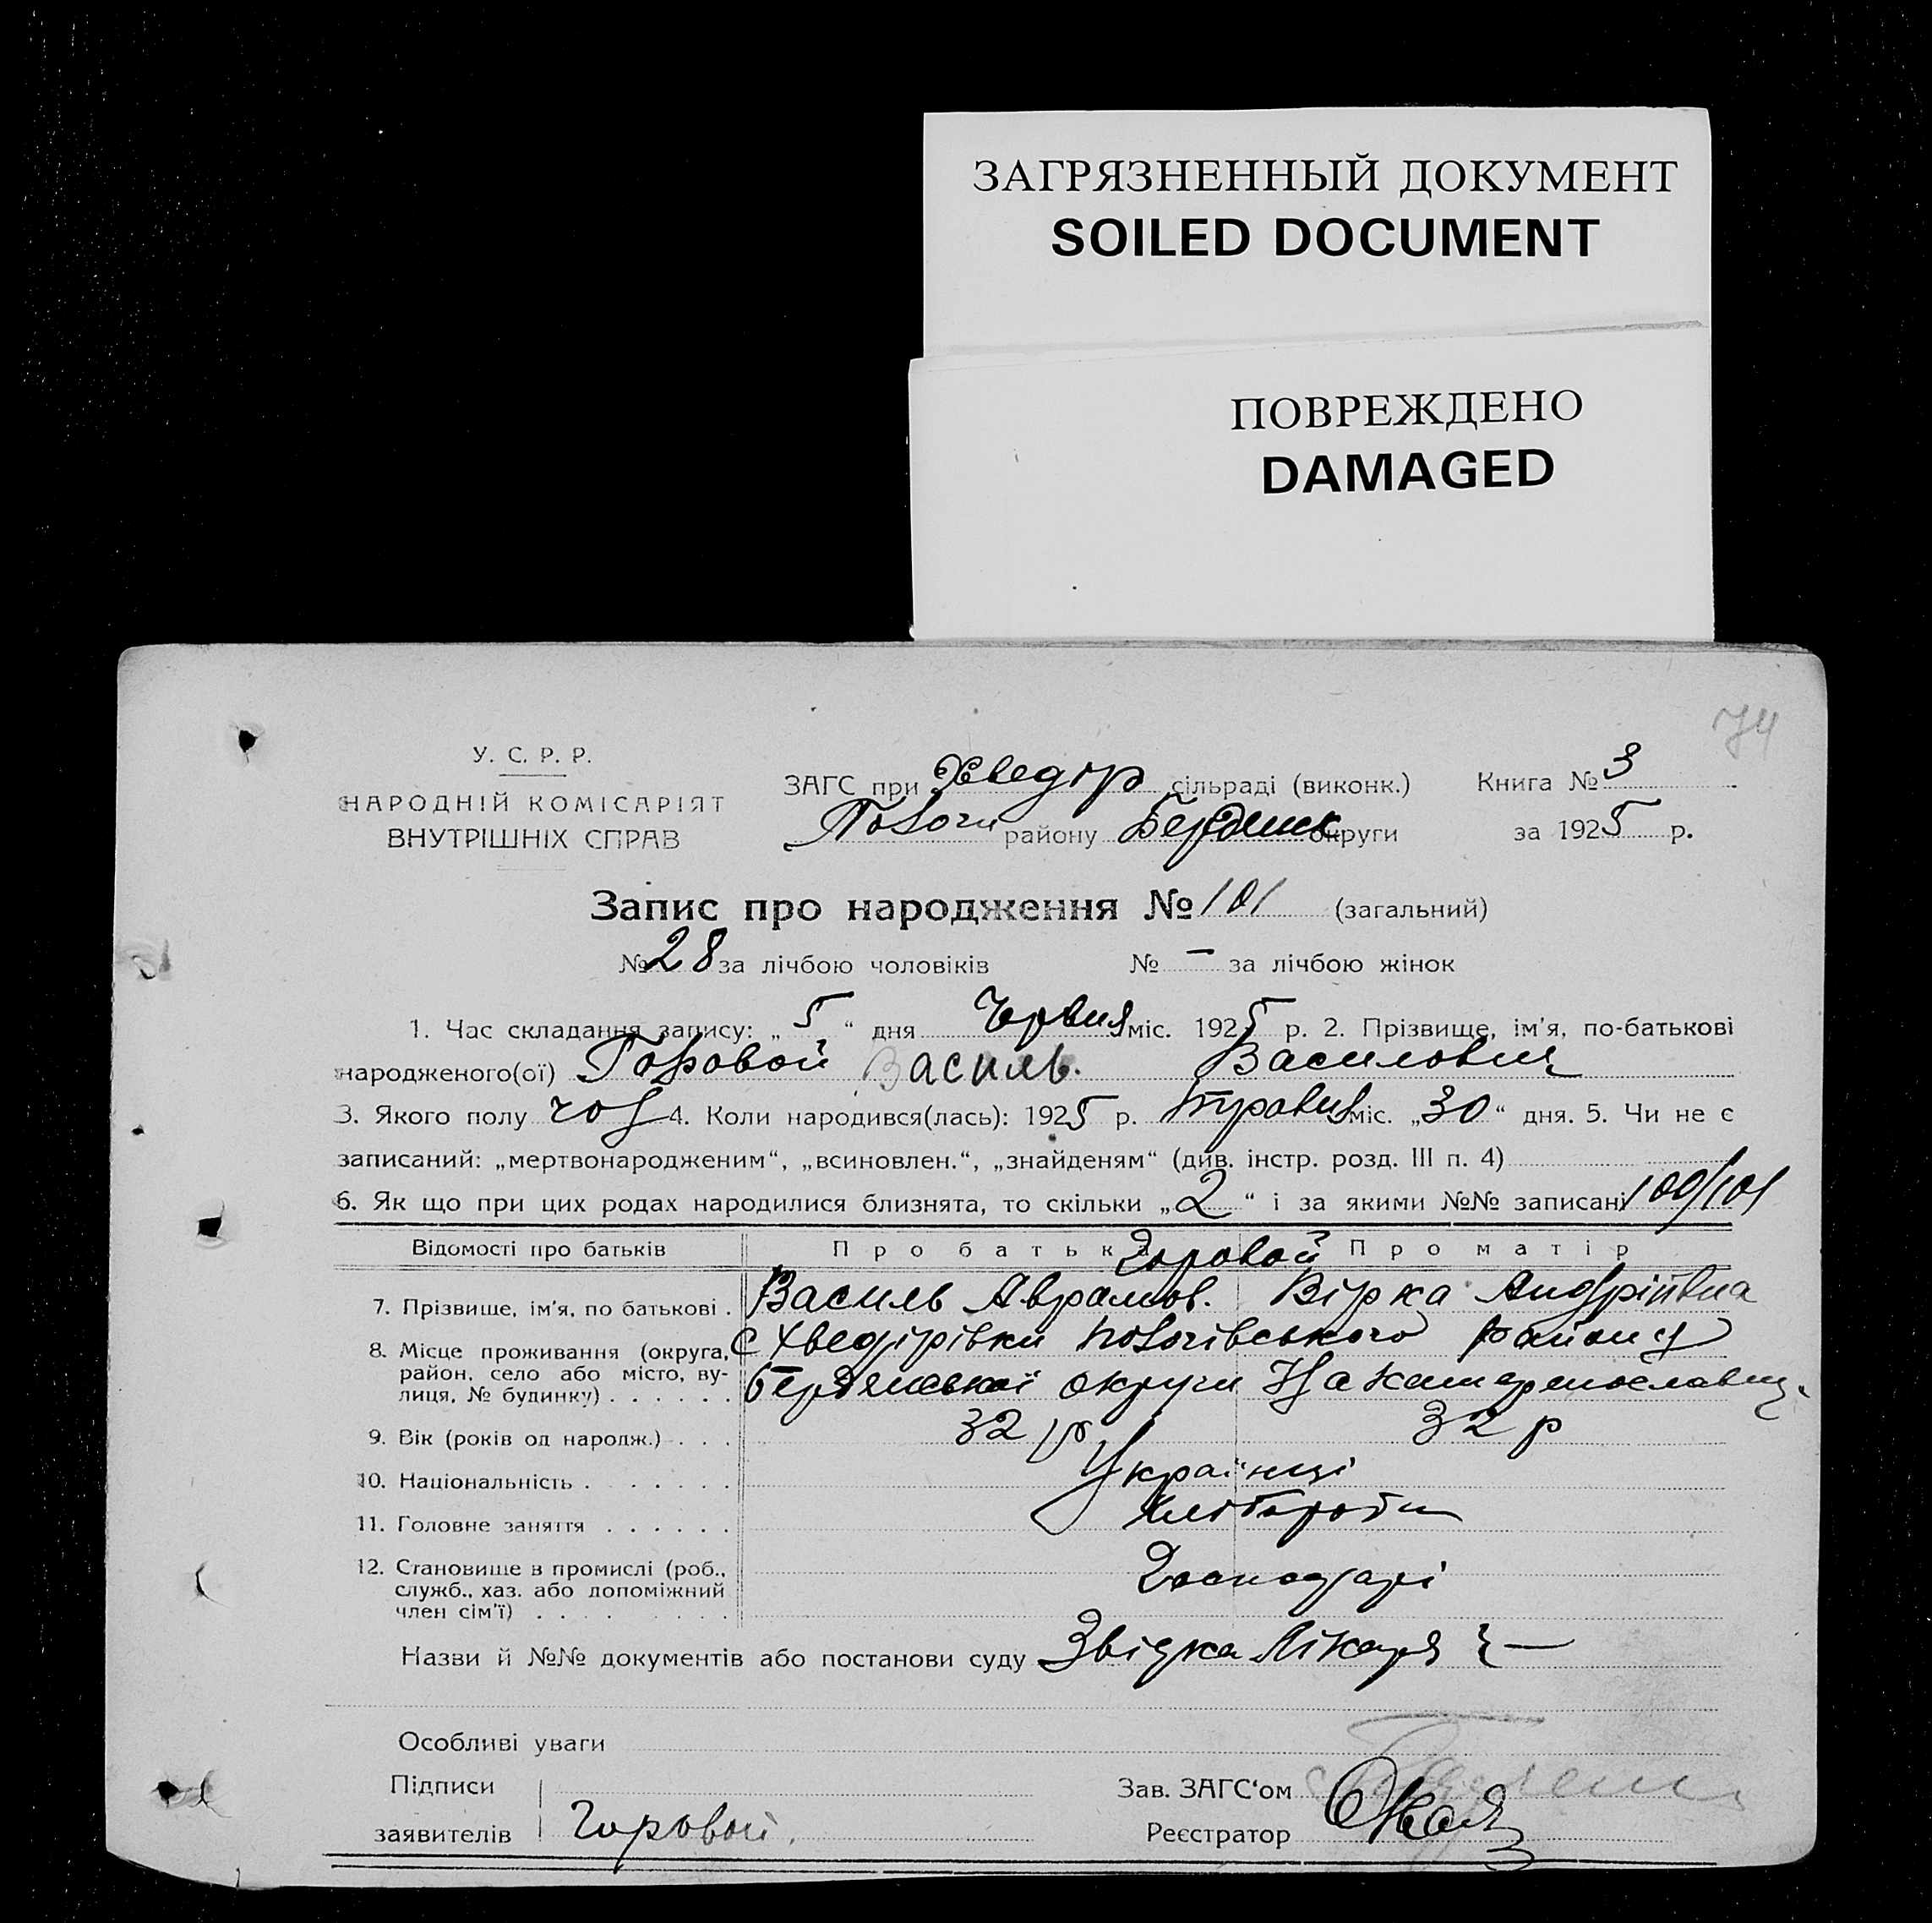 ЗАГРЯЗНЕННЫЙ ДОКУМЕНТ
SOILED DOCUMENT
ПОВРЕЖДЕНО
DAMAGED
74
У. С. Р. Р.
НАРОДНІЙ КОМІСАРІЯТ
ВНУТРІШНІХ СПРАВ
ЗАГС при Хведір сільраді (виконк.) Книга № 3
району Бердянск округи за 1925 р.
Запис про народження № 101 (загальний)
№ 28 за лічбою чоловіків № — за лічбою жінок
1. Час складання запису: „5“ дня Червня міс. 1925 р. 2. Прізвище, ім'я, по-батькові
народженого(ої) Горовой Василь Василович
3. Якого полу чол 4. Коли народився(лась): 1925 р. травня міс. „30“ дня. 5. Чи не є
записаний: „мертвонародженим“, „всиновлен.“, „знайденям“ (див. інстр. розд. III п. 4)
6. Як що при цих родах народилися близнята, то скільки „2“ і за якими №№ записані 100/101
Відомості про батьків Про батька Про матір
Горовой
7. Прізвище, ім'я, по батькові . Василь Аврамов. Вірка Андріївна
8. Місце проживання (округа, с Хведірівки района
район, село або місто, ву- Бердянської округи На Катеринославщ.
лиця, № будинку) . . . . . .
9. Вік (років од народж.) . . . 32 р. 32 р
10. Національність . . . . . . . Українці
11. Головне заняття . . . . . . Хлібороби
12. Становище в промислі (роб., Господарі
служб., хаз. або допоміжний
член сім'ї) . . . . . . . .
Назви й №№ документів або постанови суду Звідка Лікаря —
Особливі уваги
Підписи Зав. ЗАГС'ом
заявителів Горовой. Реєстратор